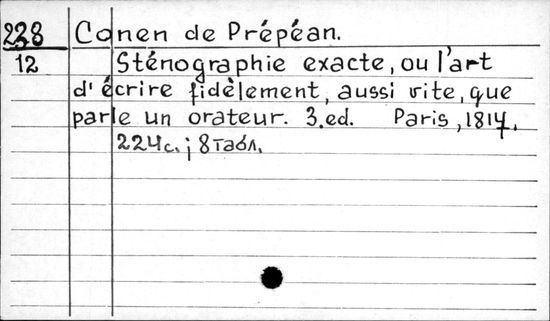 228 Conen de Prépéan.
12 Sténographie exacte, ou l'art
d'écrire fidèlement, aussi vite, que
parle un orateur. 3.ed. Paris, 1817.
224с.; 8табл.